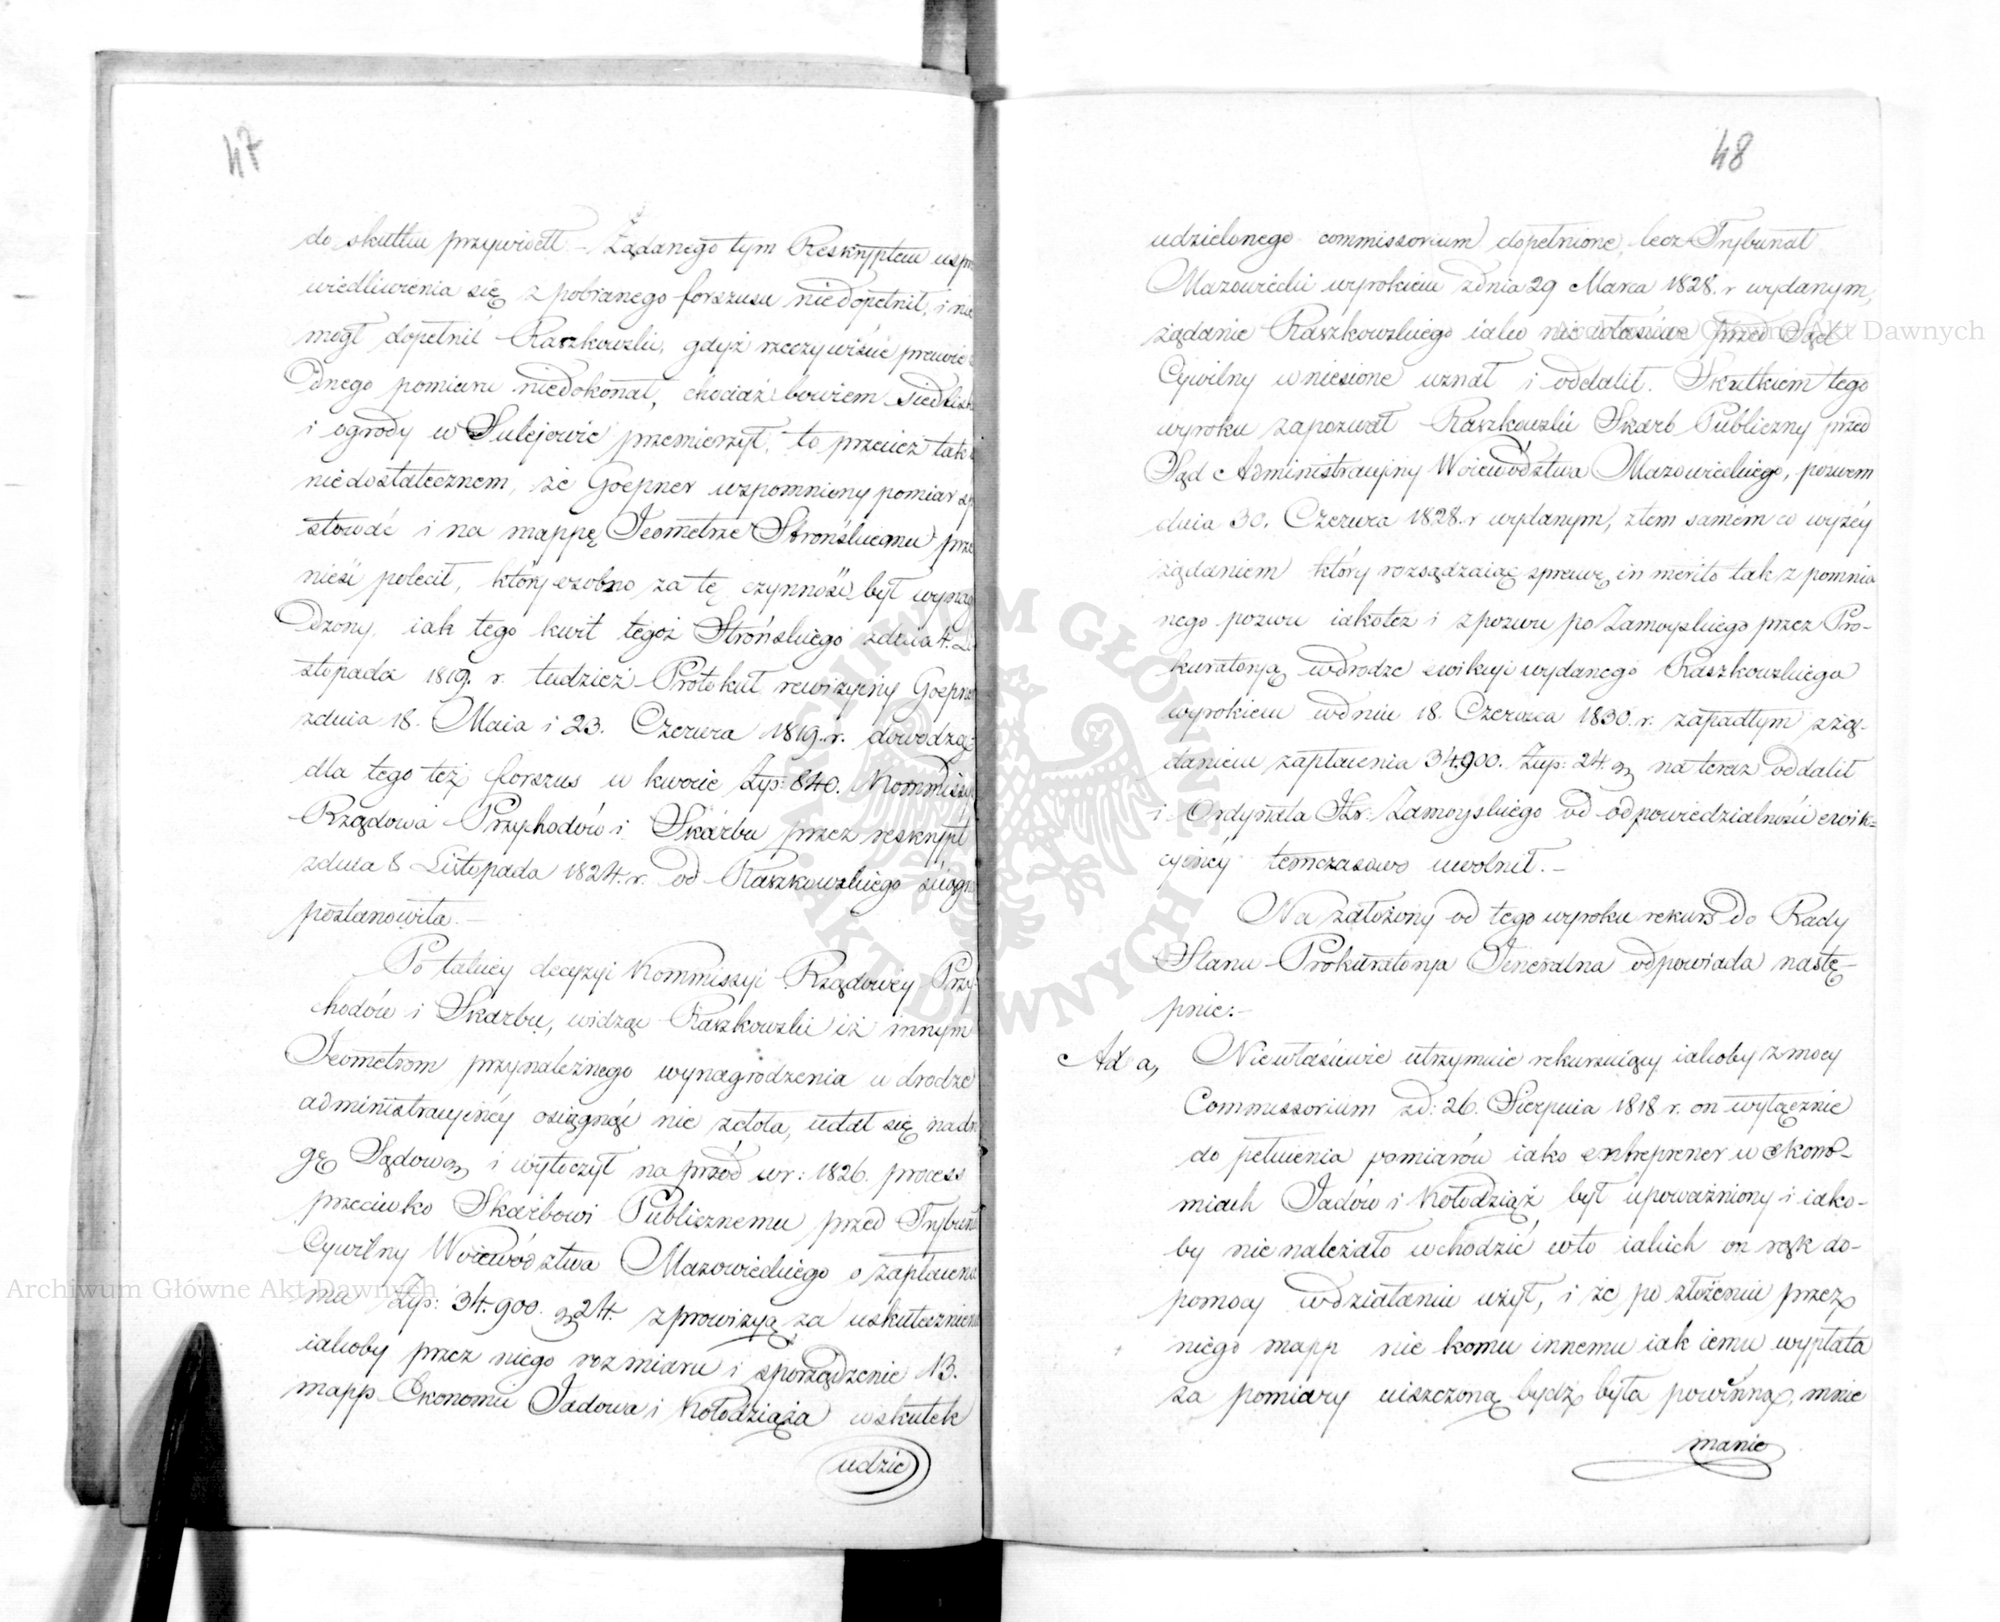 47
do skutku przywiodł. – Żądanego tym Reskryptem uspra
wiedliwienia się z pobranego forszusu niedopełnił, i nie
mogł dopełnić Raszkowski, gdyż rzeczywiście prawie
żadnego pomiaru niedokonał, chociaż bowiem Siedlisk
i ogrody w Sulejowie przemierzył, to przecież tak
niedostatecznem, że Goepner wspomniony pomiar sp
stować i na mappę Jeometrze Strońskiemu prze
nieść polecił, który osobno za tę czynność był wynag
dzony, iak tego kwit tegoż Strońskiego zdnia 4. Li
stopada 1819. r. tudzież Protokuł rewizyiny Goepne
zdnia 18. Maia i 23. Czerwca 1819. r. dowodzą
dla tego też forszus w kwocie Złp: 840. Kommissy
Rządowa Przychodów i Skarbu przez reskrypt
zdnia 8 Listopada 1824. r. od Raszkowskiego ściągn
postanowiła. –
Po takiey decyzyi Kommissyi Rządowey Przy
chodów i Skarbu, widząc Raszkowski iż innym
Jeometrom przynależnego wynagrodzenia w drodze
administracyiney osiągnąć nie zdoła, udał się na dro
gę Sądową i wytoczył na przód w r: 1826. process
przeciwko Skarbowi Publicznemu przed Trybuna
Cywilny Woiewództwa Mazowieckiego o zapłaceni
mu Złp: 34.900. gr 24. z prowizyą za uskutecznien
iakoby przez niego rozmiaru i sporządzenie 13.
mapp Ekonomii Jadowa i Kołodziąża wskutek
udzie
48
udzielonego commissorium dopełnione, lecz Trybunał
Mazowiecki wyrokiem zdnia 29 Marca 1828. r wydanym,
żądanie Raszkowskiego iako nie właściwe przed Sąd
Cywilny wniesione uznał i oddalił. Skutkiem tego
wyroku zapozwał Raszkowski Skarb Publiczny przed
Sąd Administracyiny Woiewództwa Mazowieckiego, pozwem
dnia 30. Czerwca 1828. r wydanym, z tem samém co wyżéy
żądaniem który rozsądzaiąc sprawę in merito tak z pomnia
nego pozwu iakoteż i z pozwu po Zamoyskiego przez Pro-
kuratoryą w drodze ewikcyi wydanego Raszkowskiego
wyrokiem w dniu 18. Czerwca 1830. r. zapadłym z żą-
daniem zapłacenia 34.900. Złp: 24. gr na teraz oddalił
i Ordynata Hr: Zamoyskiego od odpowiedzialności ewik=
cyinéy tymczasowo uwolnił. –
Na założony od tego wyroku rekurs do Rady
Stanu Prokuratorya Jeneralna odpowiada nastę-
pnie: –
Ad a, Niewłaściwie utrzymuie rekursuiący iakoby z mocy
Commissorium z d: 26. Sierpnia 1818 r. on wyłącznie
do pełnienia pomiarów iako entreprener w ekono-
miach Jadów i Kołodziąż był upoważniony i iako-
by nie należało wchodzić w to iakich on rąk do-
pomocy w działaniu użył, i że po złożeniu przez
niego mapp nie komu innemu iak iemu wypłata
za pomiary uiszczoną bydź była powinną, mnie
manie
Archiwum Główne Akt Dawnych
Archiwum Główne Akt Dawnych
ARCHIWUM GŁÓWNE AKT DAWNYCH